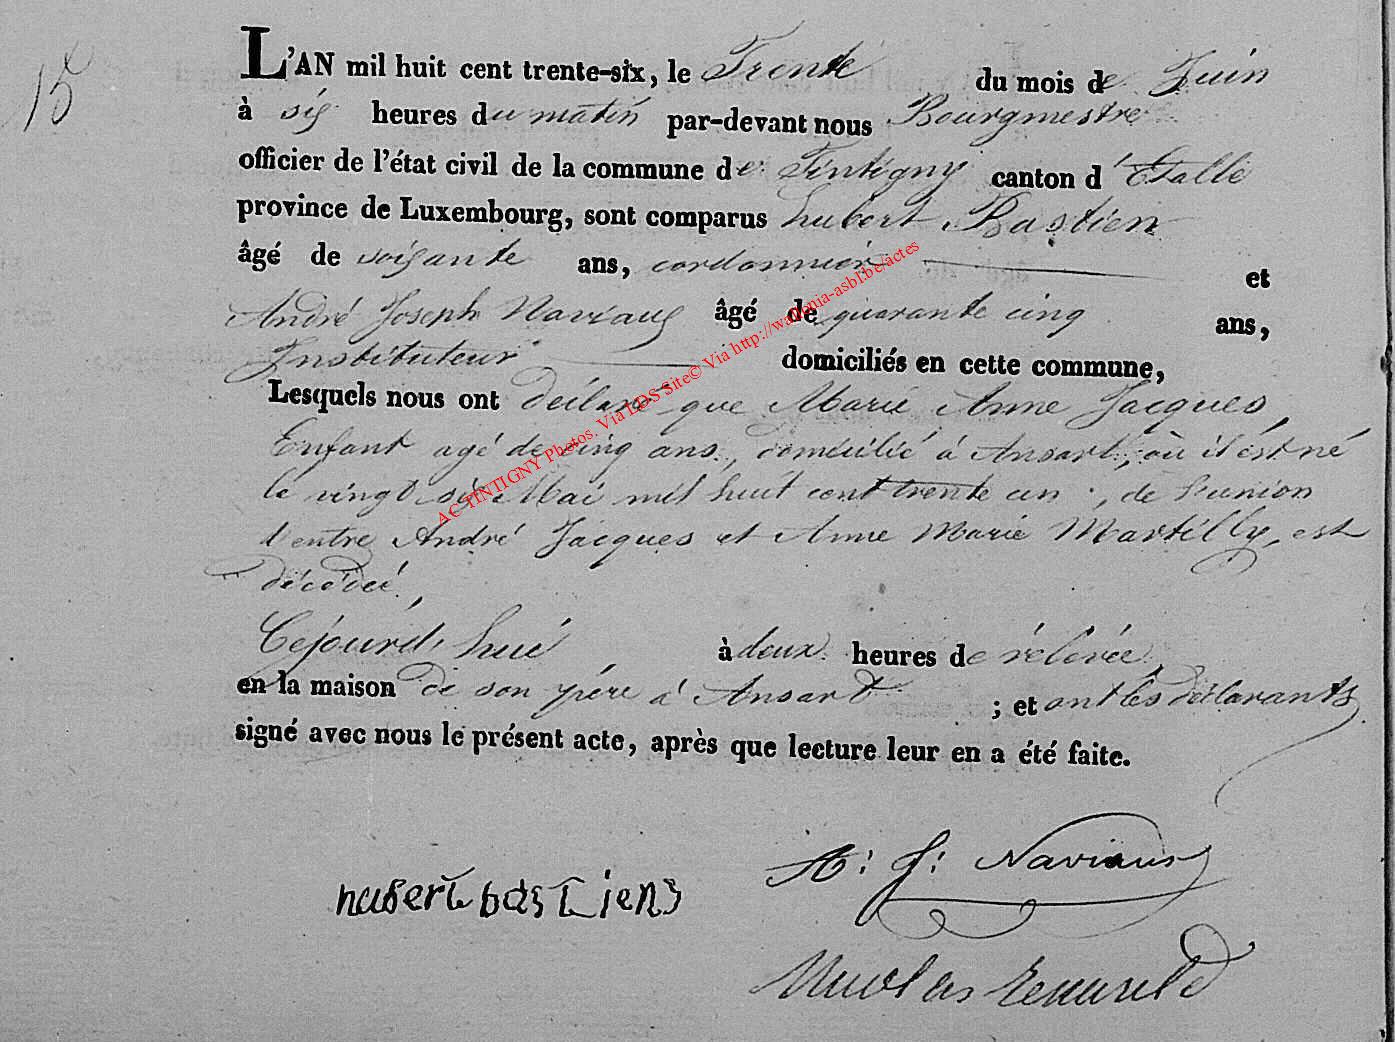 15
L'AN mil huit cent trente-six, le Trente du mois de Juin
à six heures du matin par-devant nous Bourgmestre
officier de l'état civil de la commune de Tintigny canton d'Etalle
province de Luxembourg, sont comparus hubert Bastien
âgé de soixante ans, cordonnier et
André Joseph âgé de quarante cinq ans,
Instituteur domiciliés en cette commune,
Lesquels nous ont déclaré que Marie Anne Jacques,
Enfant agé de cinq ans, domicilié à Ansart, où il est né
le vingt six Mai mil huit cent trente un, de l'union
d'entre André Jacques et Anne Marie Martilly, est
décédé,
Cejourd'hui à deux heures de rélévée,
en la maison de son père à Ansart ; et ont les déclarants
signé avec nous le présent acte, après que lecture leur en a été faite.
A: J: Naviaux
hubert bastien
Nicolas
AC TINTIGNY Photos. Via LDS Site© Via http://wallonia-asbl.be/actes